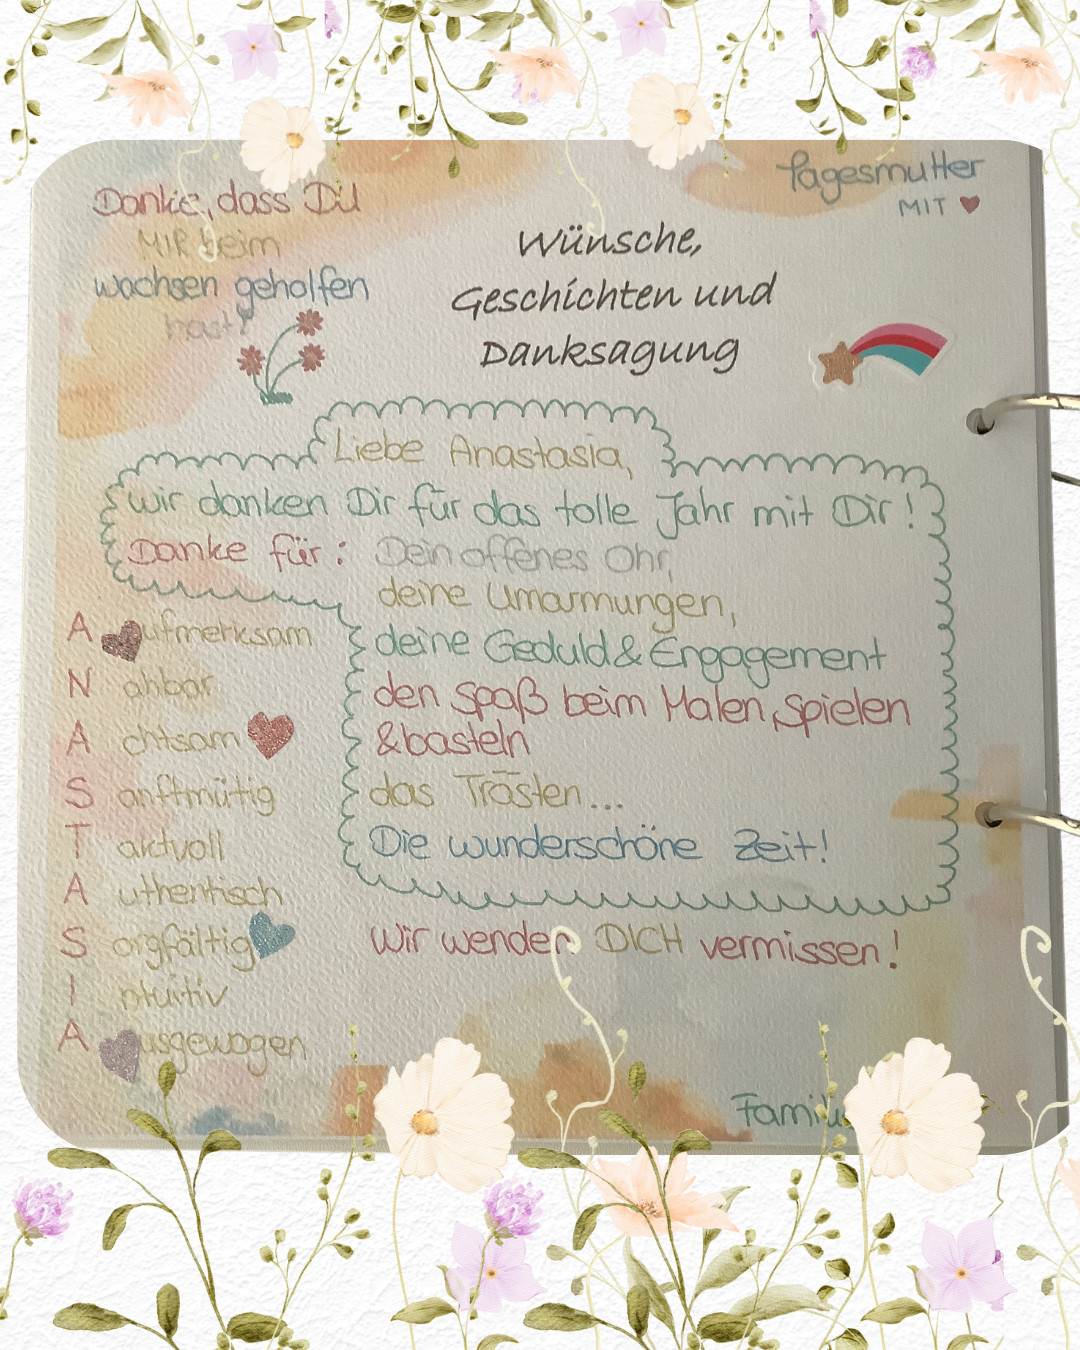 Danke, dass Du
MIR beim
wachsen geholfen
hast!
Tagesmutter
MIT
Wünsche,
Geschichten und
Danksagung
Liebe Anastasia,
wir danken Dir für das tolle Jahr mit Dir!
Danke für: Dein offenes Ohr,
deine Umarmungen,
deine Geduld & Engagement
den Spaß beim Malen, Spielen
& basteln
das Trösten...
Die wunderschöne Zeit!
Wir werden DICH vermissen!
A ufmerksam
N ahbar
A chtsam
S anftmütig
T aktvoll
A uthentisch
S orgfältig
I ntuitiv
A usgewogen